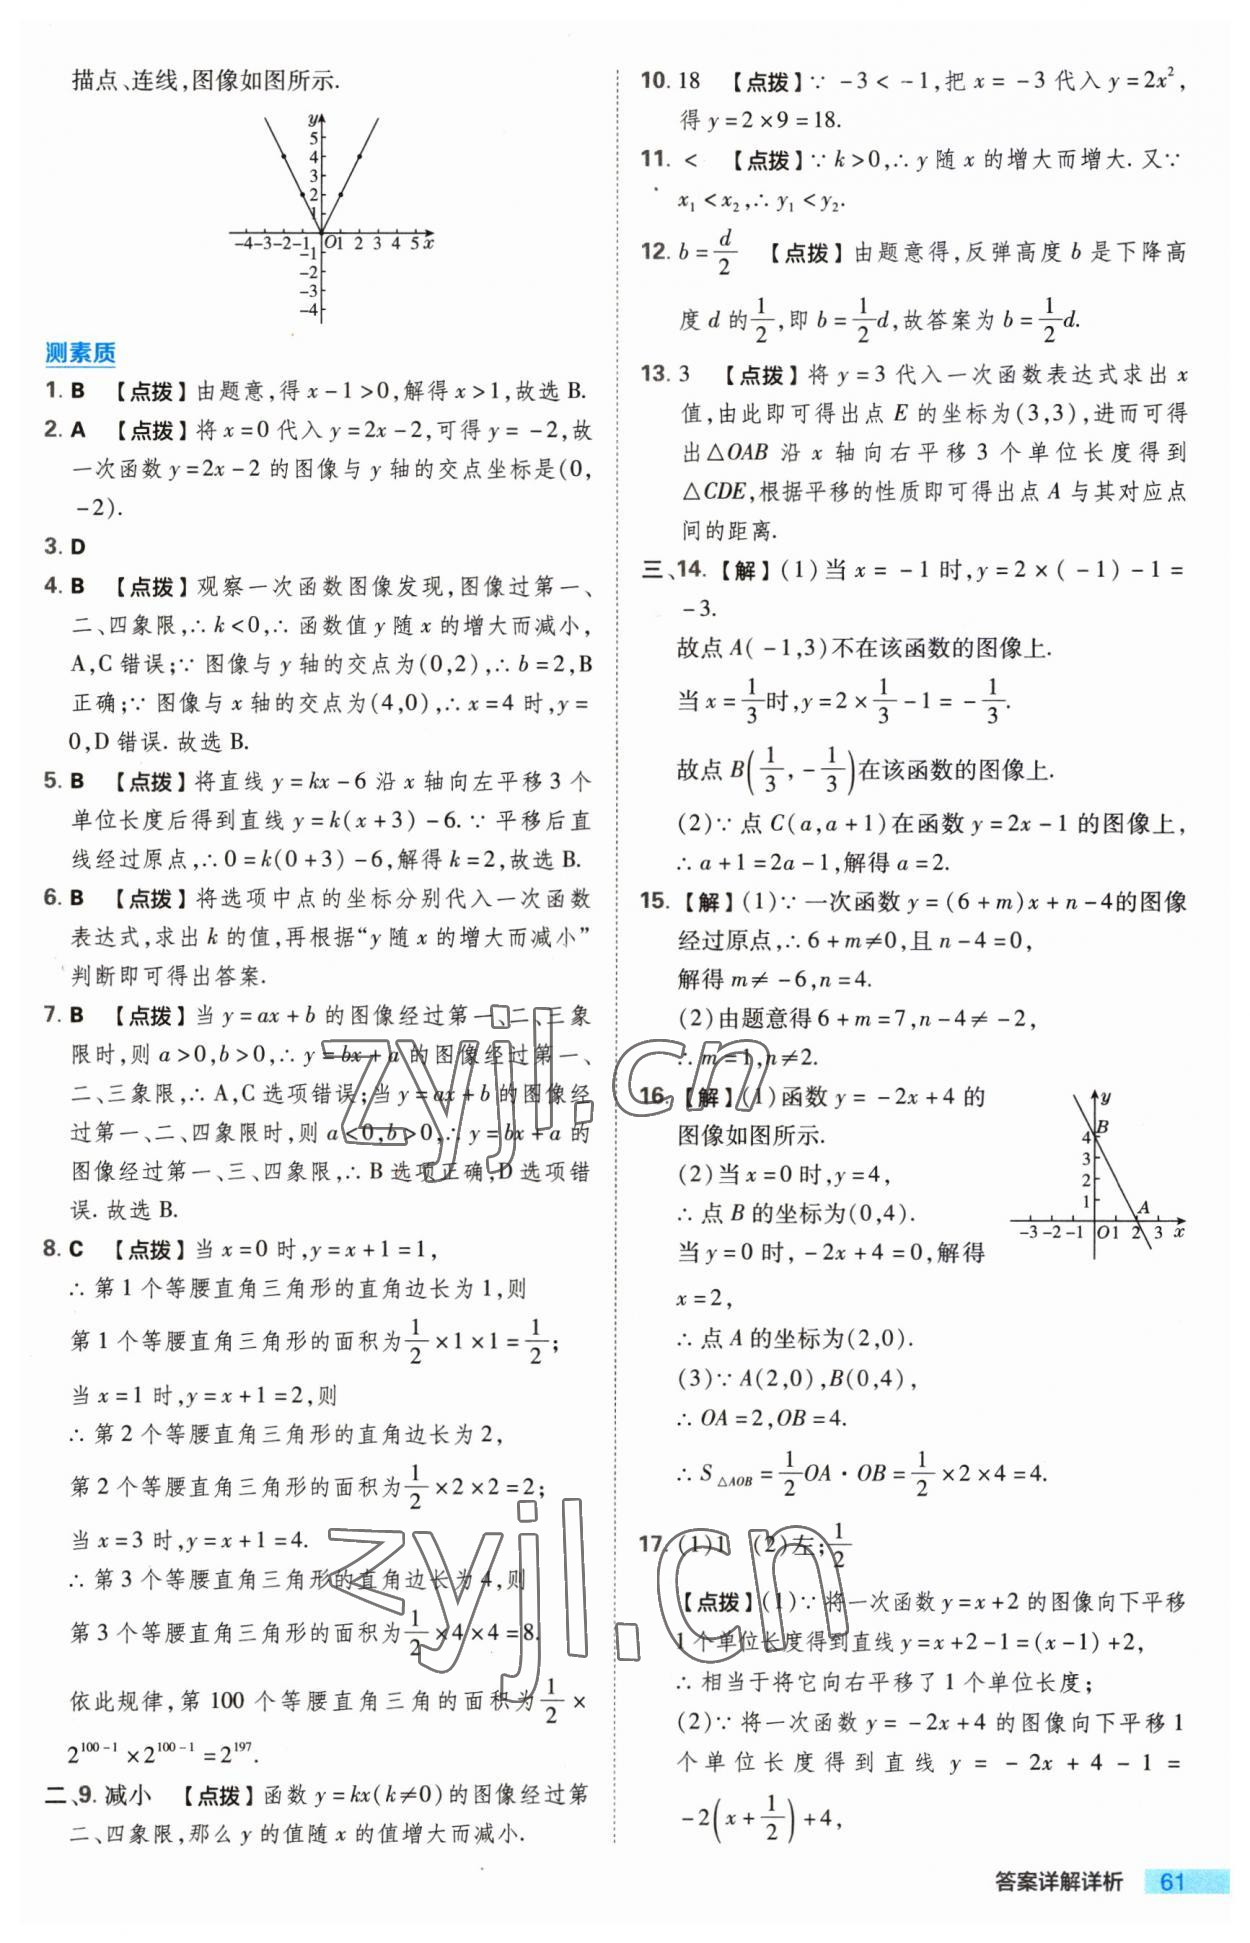 描点、连线,图像如图所示.
y
5
4
3
2
1
-4-3-2-1 O1 2 3 4 5 x
-1
-2
-3
-4
测素质
1. B 【点拨】由题意,得 x-1>0,解得 x>1,故选 B.
2. A 【点拨】将 x=0 代入 y=2x-2,可得 y=-2,故
一次函数 y=2x-2 的图像与 y 轴的交点坐标是(0,
-2).
3. D
4. B 【点拨】观察一次函数图像发现,图像过第一、
二、四象限,∴k<0,∴函数值 y 随 x 的增大而减小,
A,C 错误;∵图像与 y 轴的交点为(0,2),∴b=2,B
正确;∵图像与 x 轴的交点为(4,0),∴x=4 时,y=
0,D 错误. 故选 B.
5. B 【点拨】将直线 y=kx-6 沿 x 轴向左平移 3 个
单位长度后得到直线 y=k(x+3)-6.∵平移后直
线经过原点,∴0=k(0+3)-6,解得 k=2,故选 B.
6. B 【点拨】将选项中点的坐标分别代入一次函数
表达式,求出 k 的值,再根据“y 随 x 的增大而减小”
判断即可得出答案.
7. B 【点拨】当 y=ax+b 的图像经过第一、二、三象
限时,则 a>0,b>0,∴y=bx+a 的图像经过第一、
二、三象限,∴A,C 选项错误;当 y=ax+b 的图像经
过第一、二、四象限时,则 a<0,b>0,∴y=bx+a 的
图像经过第一、三、四象限,∴B 选项正确,D 选项错
误. 故选 B.
8. C 【点拨】当 x=0 时,y=x+1=1,
∴第 1 个等腰直角三角形的直角边长为 1,则
第 1 个等腰直角三角形的面积为1/2×1×1=1/2;
当 x=1 时,y=x+1=2,则
∴第 2 个等腰直角三角形的直角边长为 2,
第 2 个等腰直角三角形的面积为1/2×2×2=2;
当 x=3 时,y=x+1=4.
∴第 3 个等腰直角三角形的直角边长为 4,则
第 3 个等腰直角三角形的面积为1/2×4×4=8.
依此规律,第 100 个等腰直角三角的面积为1/2×
2^{100-1}×2^{100-1}=2^{197}.
二、9. 减小 【点拨】函数 y=kx(k≠0)的图像经过第
二、四象限,那么 y 的值随 x 的值增大而减小.
10. 18 【点拨】∵-3<-1,把 x=-3 代入 y=2x²,
得 y=2×9=18.
11. < 【点拨】∵k>0,∴y 随 x 的增大而增大. 又∵
x₁<x₂,∴y₁<y₂.
12. b=d/2 【点拨】由题意得,反弹高度 b 是下降高
度 d 的1/2,即 b=1/2d,故答案为 b=1/2d.
13. 3 【点拨】将 y=3 代入一次函数表达式求出 x
值,由此即可得出点 E 的坐标为(3,3),进而可得
出△OAB 沿 x 轴向右平移 3 个单位长度得到
△CDE,根据平移的性质即可得出点 A 与其对应点
间的距离.
三、14. 【解】(1)当 x=-1 时,y=2×(-1)-1=
-3.
故点 A(-1,3)不在该函数的图像上.
当 x=1/3时,y=2×1/3-1=-1/3.
故点 B(1/3,-1/3)在该函数的图像上.
(2)∵点 C(a,a+1)在函数 y=2x-1 的图像上,
∴a+1=2a-1,解得 a=2.
15. 【解】(1)∵一次函数 y=(6+m)x+n-4的图像
经过原点,∴6+m≠0,且 n-4=0,
解得 m≠-6,n=4.
(2)由题意得 6+m=7,n-4≠-2,
∴m=1,n≠2.
16. 【解】(1)函数 y=-2x+4 的
图像如图所示.
(2)当 x=0 时,y=4,
∴点 B 的坐标为(0,4).
当 y=0 时,-2x+4=0,解得
x=2,
∴点 A 的坐标为(2,0).
(3)∵A(2,0),B(0,4),
∴OA=2,OB=4.
∴S△AOB=1/2OA·OB=1/2×2×4=4.
y
B
4
3
2
1
A
-3-2-1 O1 2 3 x
17. (1)1 (2)左;1/2
【点拨】(1)∵将一次函数 y=x+2 的图像向下平移
1 个单位长度得到直线 y=x+2-1=(x-1)+2,
∴相当于将它向右平移了 1 个单位长度;
(2)∵将一次函数 y=-2x+4 的图像向下平移 1
个单位长度得到直线 y=-2x+4-1=
-2(x+1/2)+4,
zyjl.cn
zyjl.cn
答案详解详析 61